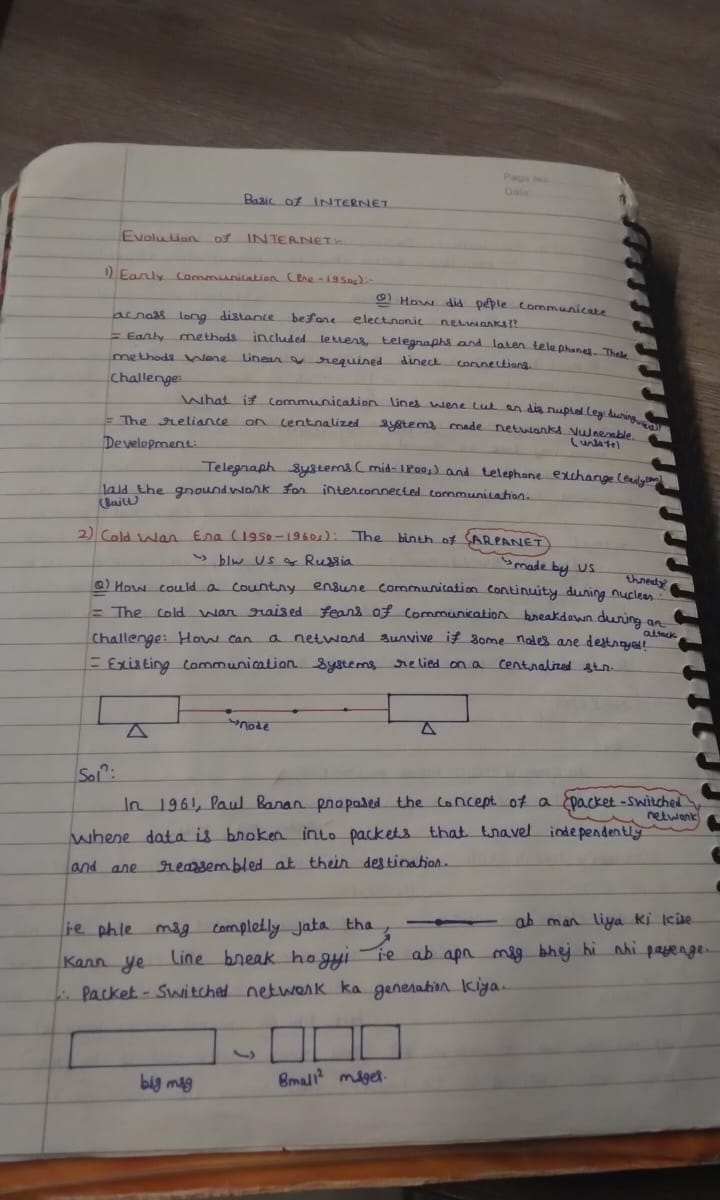 Page No:
Date:
Basic of INTERNET
Evolution of INTERNET:-
1) Early Communication (Pre-1950s):-
Q) How did peple communicate
across long distance before electronic networks??
= Early methods included letters, telegraphs and later telephones. These
methods were linear & required direct connections.
Challenge:
What if communication lines were cut or disrupted (eg: during war)?
= The reliance on centralized systems made networks vulnerable.
(unsafe)
Development:
Telegraph systems (mid-1800s) and telephone exchange (early
laid the groundwork for interconnected communication.
(Built)
2) Cold War Era (1950-1960s): The birth of ARPANET
↳ b/w US & Russia ↳ made by US
Q) How could a country ensure communication continuity during nuclear threats?
= The cold war raised fears of communication breakdown during an attack
Challenge: How can a netword survive if some nodes are destroyed?
= Existing communication systems relied on a centralized str.
↳node
Solⁿ:
In 1961, Paul Baran proposed the concept of a packet-switched network
where data is broken into packets that travel independently
and are reassembled at their destination.
ie phle msg completly jata tha, ab man liya ki kise
karn ye line break hogyi ie ab apn msg bhej hi nhi payenge.
∴ Packet-Switched network ka generation kiya.
big msg small² msges.